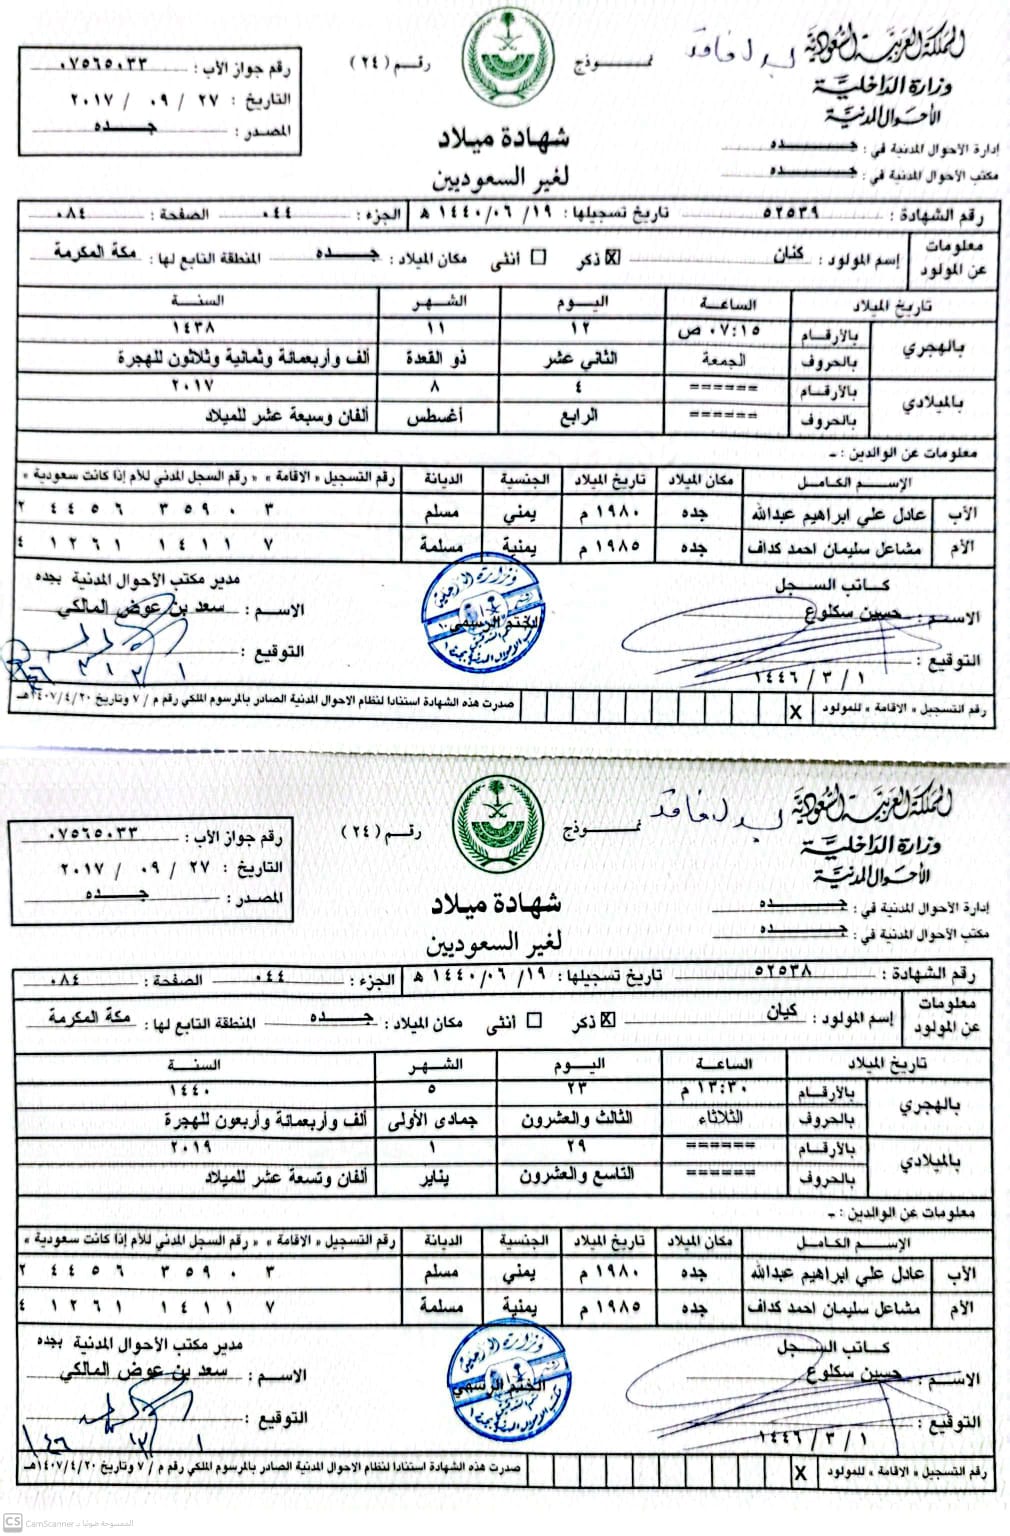 المملكة العربية السعودية
وزارة الداخلية
الأحوال المدنية
بدل فاقد
نمـــوذج رقـم (٢٤)
رقم جواز الأب : ٠٧٥٦٥٠٣٣
التاريخ : ٢٧ / ٠٩ / ٢٠١٧
المصدر : جـــده
إدارة الأحوال المدنية في : جـــده
مكتب الأحوال المدنية في : جـــده
شهادة ميلاد
لغير السعوديين
رقم الشهادة : ٥٢٥٣٩ تاريخ تسجيلها : ١٩ /٠٦ /١٤٤٠ هـ الجزء : ٠٤٤ الصفحة : ٠٨٤
معلومات عن المولود إسم المولود : كنان ☒ ذكر ☐ أنثى مكان الميلاد : جـــده المنطقة التابع لها : مكة المكرمة
تاريخ الميلاد الساعـة اليــوم الشهـر السنــة
بالهجري بالأرقام ٠٧:١٥ ص ١٢ ١١ ١٤٣٨
بالحروف الجمعة الثاني عشر ذو القعدة ألف وأربعمائة وثمانية وثلاثون للهجرة
بالميلادي بالأرقام ====== ٤ ٨ ٢٠١٧
بالحروف ====== الرابع أغسطس ألفان وسبعة عشر للميلاد
معلومات عن الوالدين : ـ
الإســم الكامـل مكان الميلاد تاريخ الميلاد الجنسية الديانة رقم التسجيل « الاقامة » « رقم السجل المدني للأم إذا كانت سعودية »
الأب عادل علي ابراهيم عبدالله جده ١٩٨٠ م يمني مسلم ٢ ٤ ٤ ٥ ٦ ٣ ٥ ٩ ٠ ٣
الأم مشاعل سليمان احمد كداف جده ١٩٨٥ م يمنية مسلمة ٤ ١ ٢ ٦ ١ ١ ٤ ١ ١ ٧
كاتب الســجل مدير مكتب الأحوال المدنية بجده
الاسـم : حسين سكلوع الاسـم : سعد بن عوض المالكي
الختم الرسمي
التوقيع : التوقيع :
١ / ٣ / ١٤٤٦
رقم التسجيل « الاقامة » للمولود X صدرت هذه الشهادة استنادا لنظام الاحوال المدنية الصادر بالمرسوم الملكي رقم م / ٧ وتاريخ ١٤٠٧/٤/٢٠هـ
المملكة العربية السعودية
وزارة الداخلية
الأحوال المدنية
بدل فاقد
نمـــوذج رقـم (٢٤)
رقم جواز الأب : ٠٧٥٦٥٠٣٣
التاريخ : ٢٧ / ٠٩ / ٢٠١٧
المصدر : جـــده
إدارة الأحوال المدنية في : جـــده
مكتب الأحوال المدنية في : جـــده
شهادة ميلاد
لغير السعوديين
رقم الشهادة : ٥٢٥٣٨ تاريخ تسجيلها : ١٩ /٠٦ /١٤٤٠ هـ الجزء : ٠٤٤ الصفحة : ٠٨٤
معلومات عن المولود إسم المولود : كيان ☒ ذكر ☐ أنثى مكان الميلاد : جـــده المنطقة التابع لها : مكة المكرمة
تاريخ الميلاد الساعـة اليــوم الشهـر السنــة
بالهجري بالأرقام ١٣:٣٠ م ٢٣ ٥ ١٤٤٠
بالحروف الثلاثاء الثالث والعشرون جمادى الأولى ألف وأربعمائة وأربعون للهجرة
بالميلادي بالأرقام ====== ٢٩ ١ ٢٠١٩
بالحروف ====== التاسع والعشرون يناير ألفان وتسعة عشر للميلاد
معلومات عن الوالدين : ـ
الإســم الكامـل مكان الميلاد تاريخ الميلاد الجنسية الديانة رقم التسجيل « الاقامة » « رقم السجل المدني للأم إذا كانت سعودية »
الأب عادل علي ابراهيم عبدالله جده ١٩٨٠ م يمني مسلم ٢ ٤ ٤ ٥ ٦ ٣ ٥ ٩ ٠ ٣
الأم مشاعل سليمان احمد كداف جده ١٩٨٥ م يمنية مسلمة ٤ ١ ٢ ٦ ١ ١ ٤ ١ ١ ٧
كاتب الســجل مدير مكتب الأحوال المدنية بجده
الاسـم : حسين سكلوع الاسـم : سعد بن عوض المالكي
الختم الرسمي
التوقيع : التوقيع :
١ / ٣ / ١٤٤٦
رقم التسجيل « الاقامة » للمولود X صدرت هذه الشهادة استنادا لنظام الاحوال المدنية الصادر بالمرسوم الملكي رقم م / ٧ وتاريخ ١٤٠٧/٤/٢٠هـ
CS الممسوحة ضوئيا بـ CamScanner